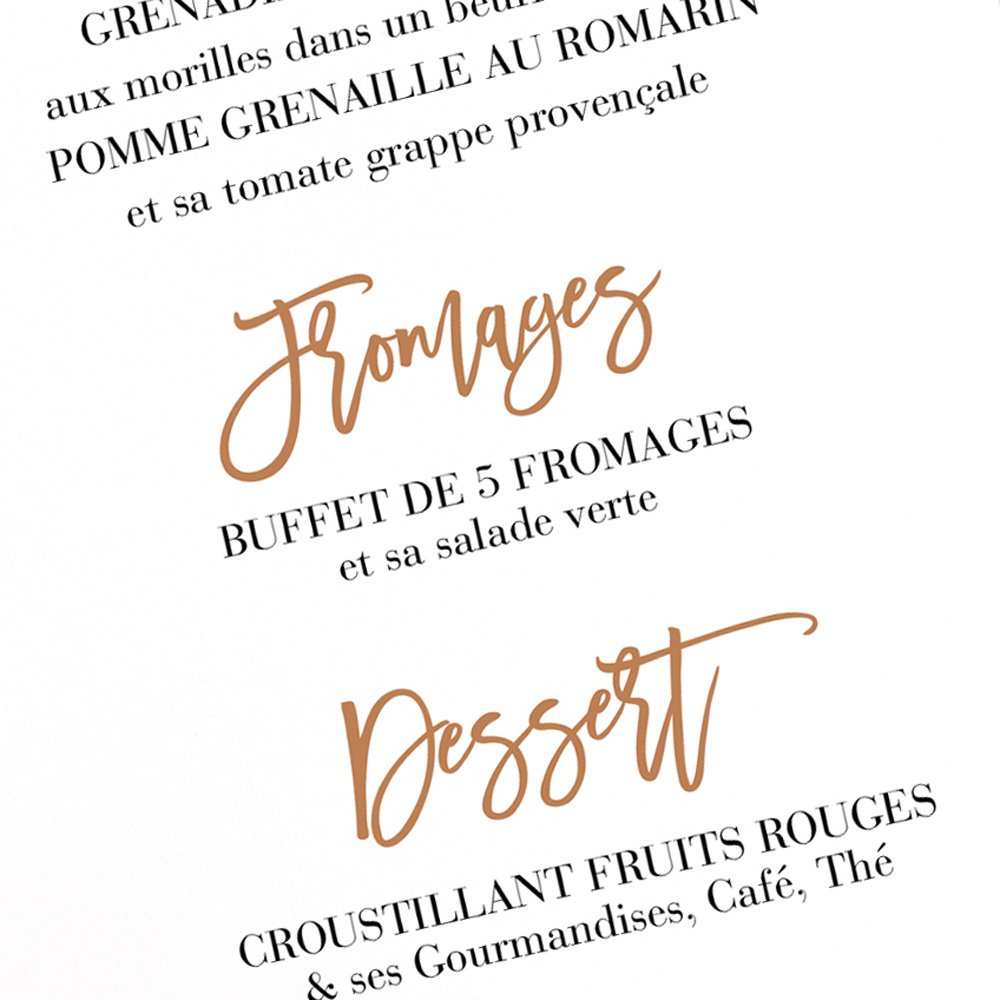 aux morilles dans un
POMME GRENAILLE AU ROMARIN
et sa tomate grappe provençale
Fromages
BUFFET DE 5 FROMAGES
et sa salade verte
Dessert
CROUSTILLANT FRUITS ROUGES
& ses Gourmandises, Café, Thé